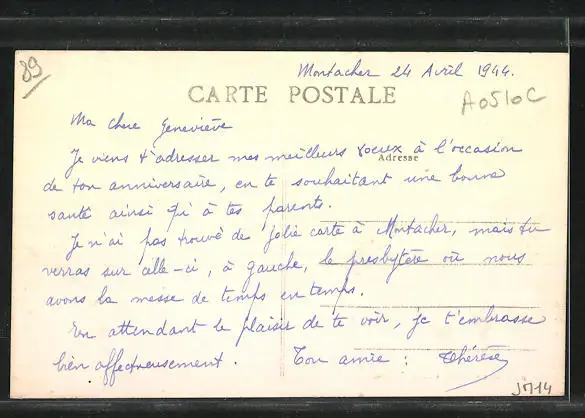 89
Montacher 24 Avril 1944.
CARTE POSTALE
A0510C
Ma chere Geneviève
Je viens t'adresser mes meilleurs voeux à l'occasion
Adresse
de ton anniversaire, en te souhaitant une bonne
santé ainsi qu'à tes parents.
Je n'ai pas trouvé de jolie carte à Montacher, mais tu
verras sur celle-ci, à gauche, le presbytère où nous
avons la messe de temps en temps.
En attendant le plaisir de te voir, je t'embrasse
bien affectueusement. Ton amie : Thérèse
J714